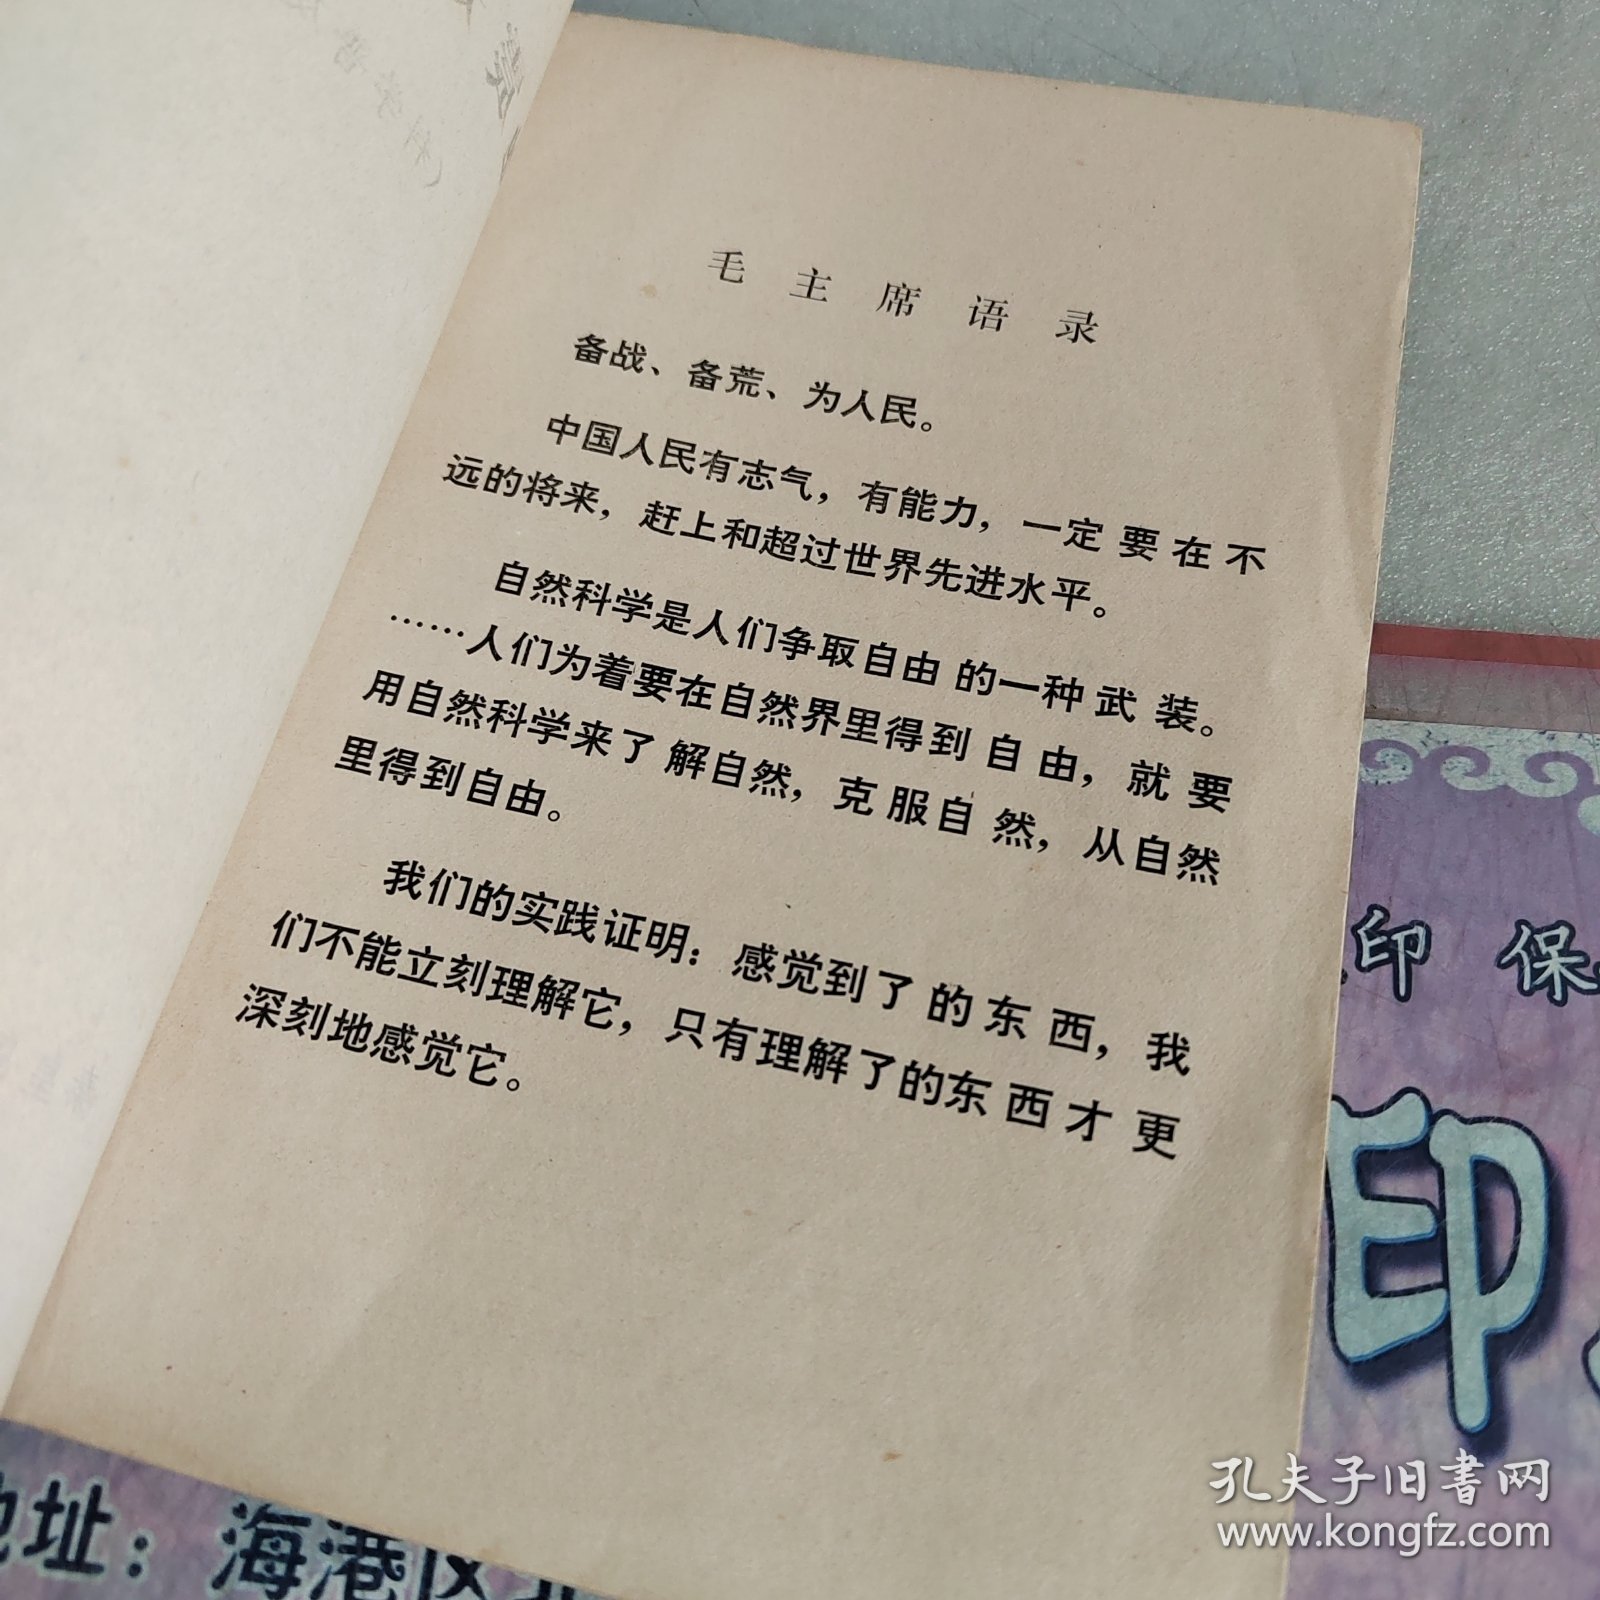 毛主席语录
备战、备荒、为人民。
中国人民有志气，有能力，一定要在不
远的将来，赶上和超过世界先进水平。
自然科学是人们争取自由的一种武装。
……人们为着要在自然界里得到自由，就要
用自然科学来了解自然，克服自然，从自然
里得到自由。
我们的实践证明：感觉到了的东西，我
们不能立刻理解它，只有理解了的东西才更
深刻地感觉它。
印 保
印
地址：海港区
孔夫子旧书网
www.kongfz.com